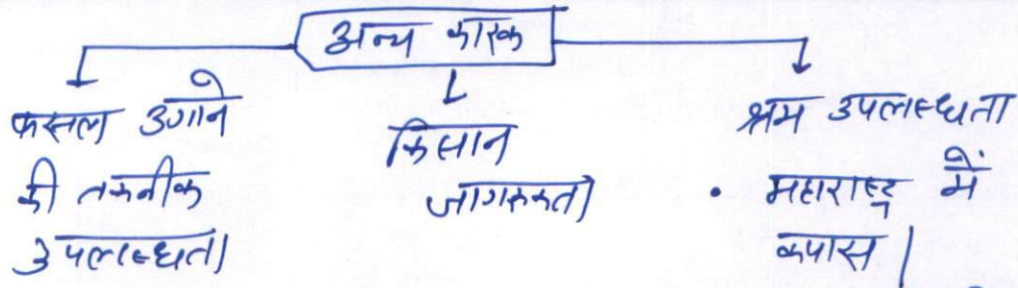 अन्य कारक
फसल उगाने
की तकनीक
उपलब्धता
किसान
जागरूकता
श्रम उपलब्धता
• महाराष्ट्र में
कपास।